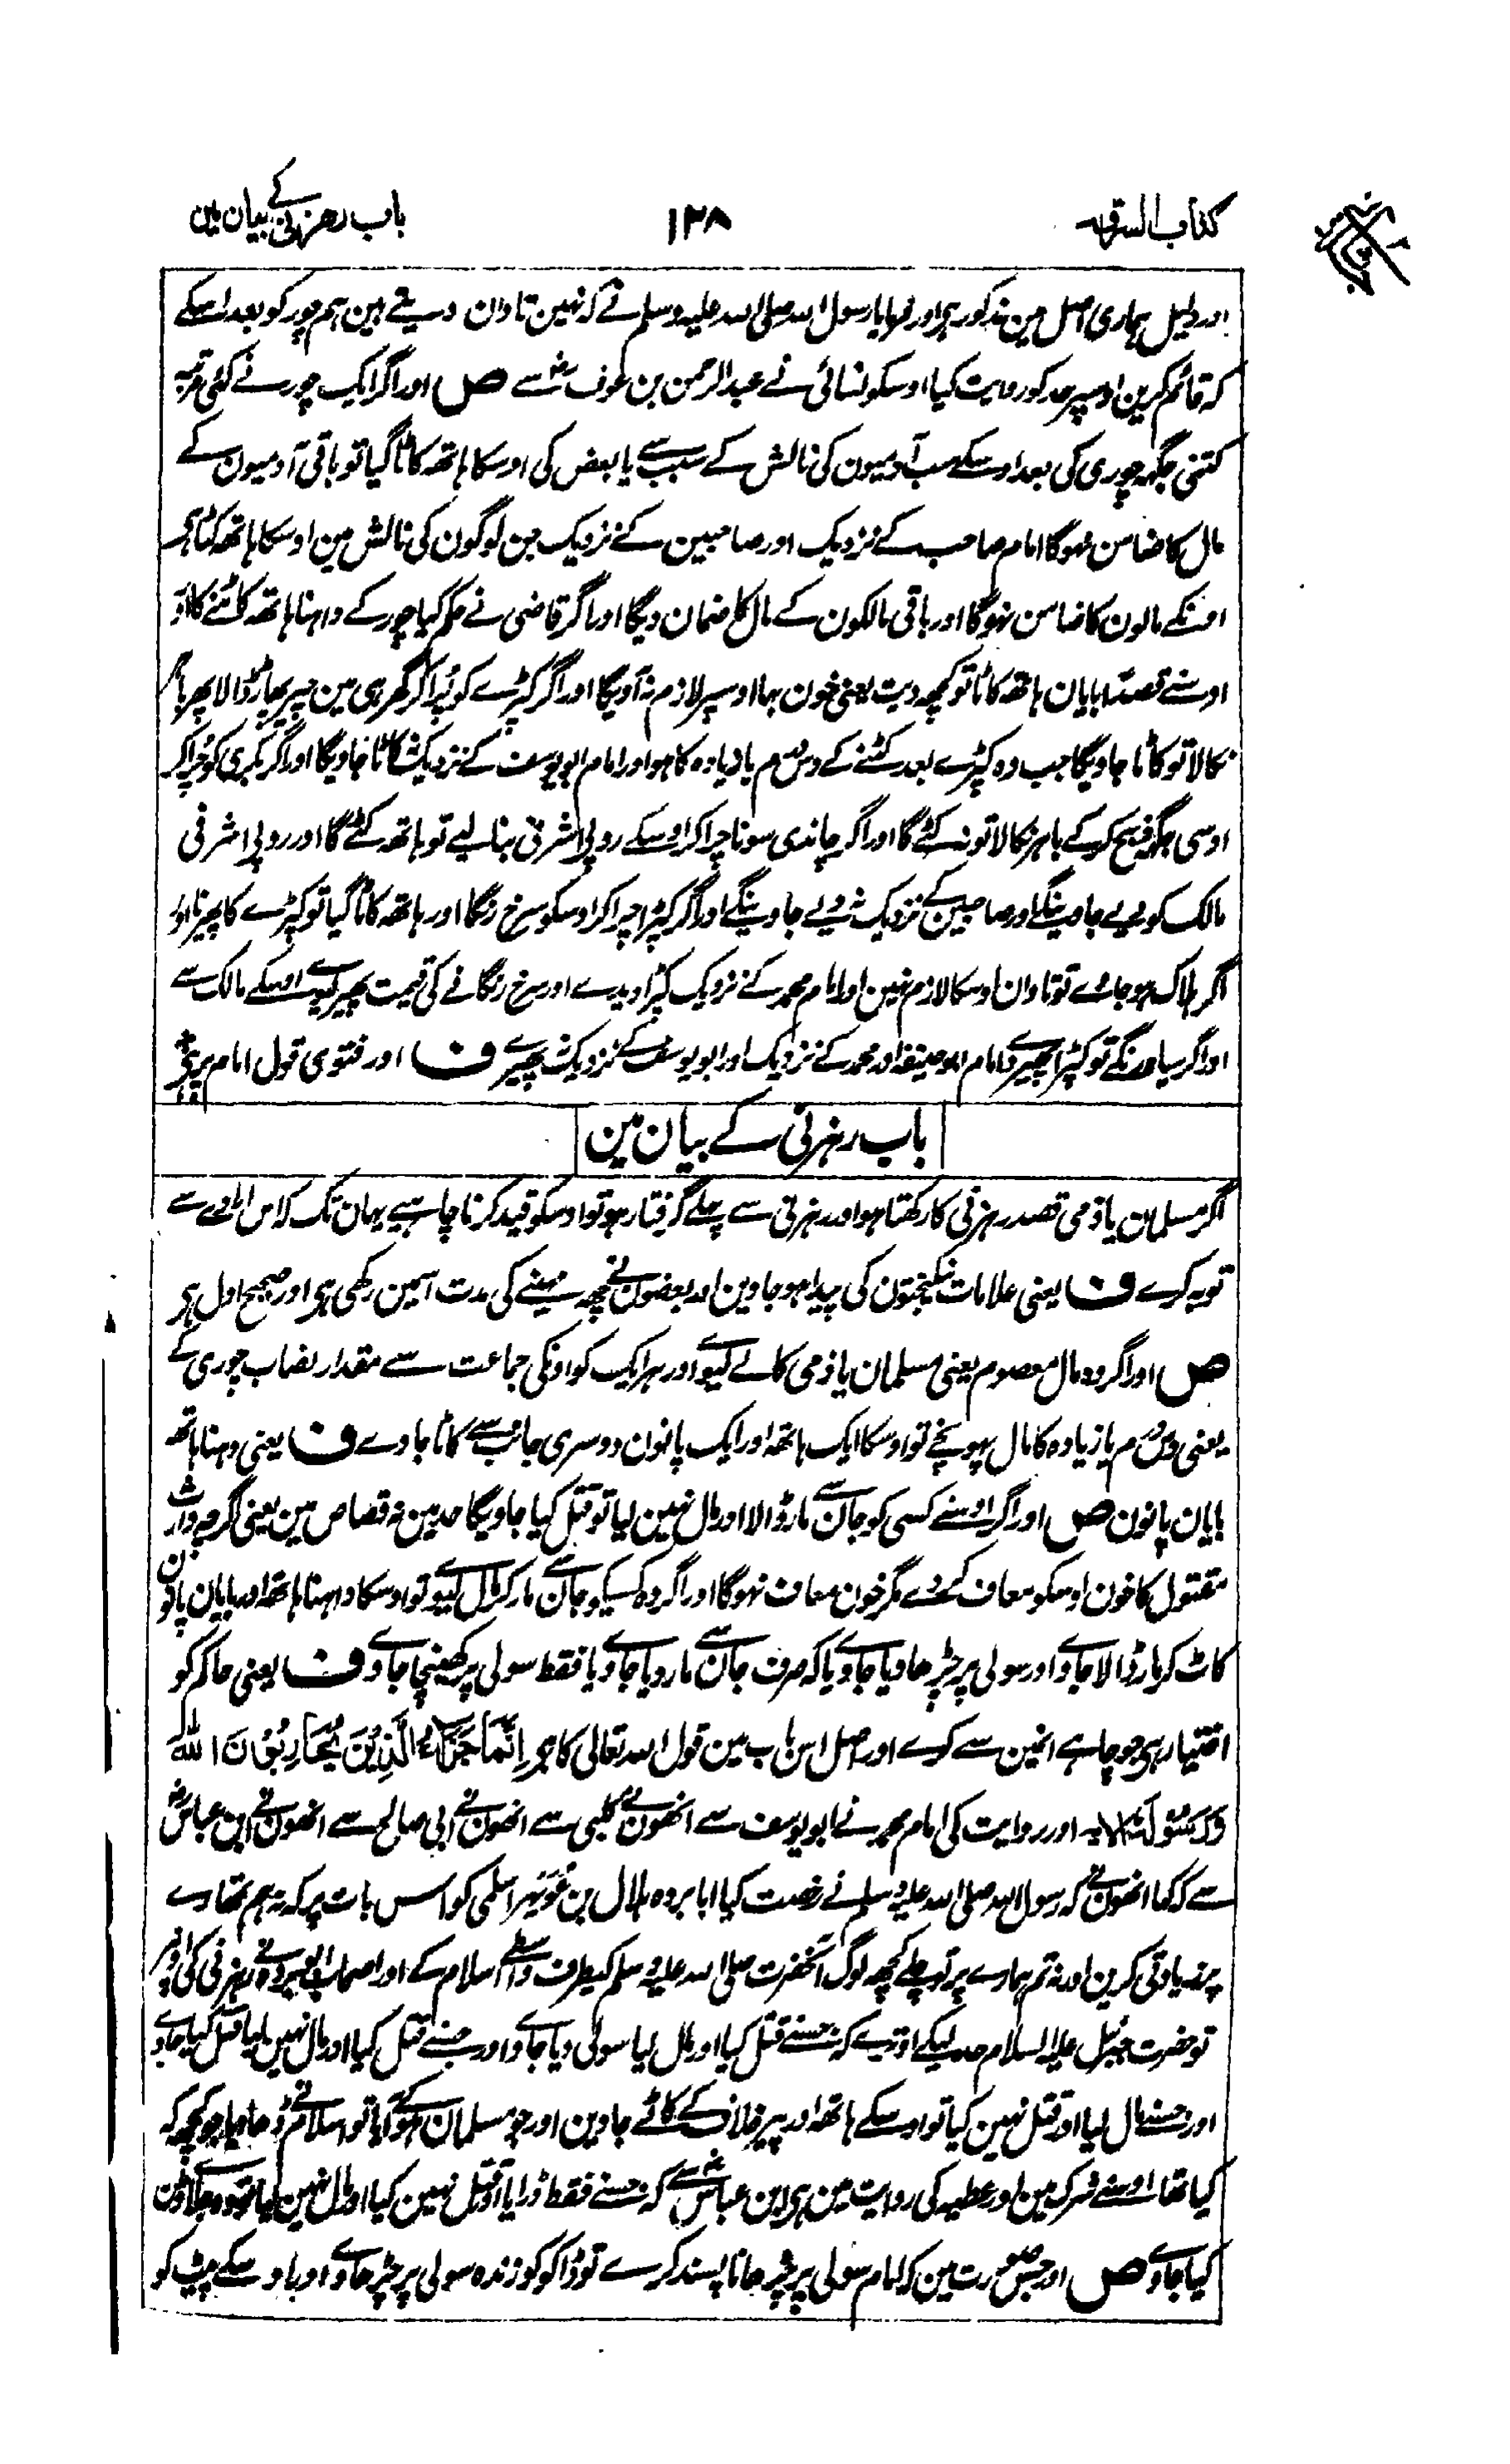 کتاب السرقہ
۱۲۸
باب رهزنی کے بیان میں
اور دلیل ہماری اصل مین مذکور ہے اور فرمایا رسول اللہ صلی اللہ علیہ وسلم نے کہ نہین تاوان دیتے ہین ہم چور کو بعد اسکے
کہ قائم کرین اوسپر حد کو روایت کیا اوسکو نسائی نے عبد الرحمن بن عوف رض سے ص اور اگر ایک چور نے کئی مرتبہ
کتنی جگہ چوری کی بعد اوسکے سب آدمیون کی نالش کے سبب سے یا بعض کی اوسکا ہاتھ کاٹا گیا تو باقی آدمیون کے
مال کا ضامن نہوگا امام صاحب کے نزدیک اور صاحبین کے نزدیک جن لوگون کی نالش مین اوسکا ہاتھ کٹا ہی
اونکے مالون کا ضامن نہوگا اور باقی مالکون کے مال کا ضمان دیگا اور اگر قاضی نے حکم کیا چور کے داہنا ہاتھ کاٹنے کا اور
اوسنے قصدًا بایان ہاتھ کاٹا تو کچھ دیت یعنی خون بہا اوسپر لازم نہ آویگا اور اگر کپڑے کو چُرا کر گھر ہی مین چیر پھاڑ ڈالا پھر باہر
نکالا تو کاٹا جاویگا جب وہ کپڑے بعد کٹنے کے دس درم یا زیادہ کا ہو اور امام ابو یوسف کے نزدیک نہ کاٹا جاویگا اور اگر بکری کو چُرا کر
اوسی جگہ ذبح کر کے باہر نکالا تو نہ کٹے گا اور اگر چاندی سونا چرا کر اوسکے روپے اشرفی بنا لیے تو ہاتھ کٹے گا اور روپے اشرفی
مالک کو دیے جاوینگے اور صاحبین کے نزدیک نہ دیے جاوینگے اور اگر کپڑا چرا کر اوسکو سرخ رنگا اور ہاتھ کاٹا گیا تو کپڑے کا پھیرنا اور
اگر ہلاک ہو جاے تو تاوان اوسکا لازم نہین اور امام محمد کے نزدیک کپڑا دیدے اور سرخ رنگانے کی قیمت پھیر لیوے اوسکے مالک سے
اور اگر سیاہ رنگے تو کپڑا پھیر دے امام ابو حنیفہ اور محمد کے نزدیک اور ابو یوسف کے نزدیک نہ پھیرے ف اور فتوی قول امام پر ہے
باب رہزنی کے بیان مین
اگر مسلمان یا ذمی قصد رہزنی کا رکھتا ہو اور رہزنی سے پہلے گرفتار ہو تو اوسکو قید کرنا چاہیے یہان تک کہ اس ارادے سے
توبہ کرے ف یعنی علامات نیکبختون کی پیدا ہو جاوین اور بعضون نے چھ مہینے کی مدت اسمین رکھی ہی اور صحیح اول ہی
ص اور اگر وہ مال معصوم یعنی مسلمان یا ذمی کا لے لیوے اور ہر ایک کو اونکی جماعت سے مقدار نصاب چوری کے
یعنی دس درم یا زیادہ کا مال پہونچے تو اوسکا ایک ہاتھ اور ایک پانون دوسری جانب سے کاٹا جاوے ف یعنی دہنا ہاتھ
بایان پانون ص اور اگر اوسنے کسی کو جان سے مار ڈالا اور مال نہین لیا تو قتل کیا جاویگا حد مین نہ قصاص مین یعنی اگرچہ وارث
مقتول کا خون اوسکو معاف کر دے مگر خون معاف نہوگا اور اگر وہ کسیکو جان سے مار کر مال لیوے تو اوسکا داہنا ہاتھ اور بایان پانون
کاٹ کر مار ڈالا جاوے اور سولی پر چڑھا دیا جاوے یا کہ صرف جان سے مار دیا جاوے یا فقط سولی پر کھینچا جاوے ف یعنی حاکم کو
اختیار ہی جو چاہے انمین سے کرے اور اصل اس باب مین قول اللہ تعالی کا ہی اِنَّمَا جَزَاءُ الَّذِیْنَ یُحَارِبُوْنَ اللّٰهَ
وَرَسُوْلَهٗ الآیہ اور روایت کی امام محمد نے ابو یوسف سے انھون نے کلبی سے انھون نے ابی صالح سے انھون نے ابن عباس رض
سے کہ کہا انھون نے کہ رسول اللہ صلی اللہ علیہ وسلم نے رخصت کیا ابا بردہ ہلال بن عُوَیمر اسلمی کو اس بات پر کہ نہ ہم تمھارے
پر زیادتی کرین اور نہ تم ہمارے پر تو چلے کچھ لوگ آنحضرت صلی اللہ علیہ وسلم کیطرف واسطے اسلام کے اور اصحاب ابو بردہ نے رہزنی کی اونپر
تو حضرت جبرئیل علیہ السلام حد لیکے اوترے کہ جسنے قتل کیا اور مال لیا سولی دیا جاوے اور جسنے قتل کیا اور مال نہین لیا قتل کیا جاوے
اور جسنے مال لیا اور قتل نہین کیا تو اوسکے ہاتھ اور پیر خلاف کے کاٹے جاوین اور جو مسلمان ہو کے آیا تو اسلام نے ڈھا دیا جو کچھ کہ
کیا تھا اوسنے شرک مین اور عطیہ کی روایت مین ہی ابن عباس رض سے کہ جسنے فقط ڈرایا اور قتل نہین کیا اور مال نہین لیا تو وہ جلا وطن
کیا جاوے ص اور جس صورت مین کہ امام سولی پر چڑھانا پسند کرے تو ڈاکو کو زندہ سولی پر چڑھاوے اور اوسکے پیٹ کو